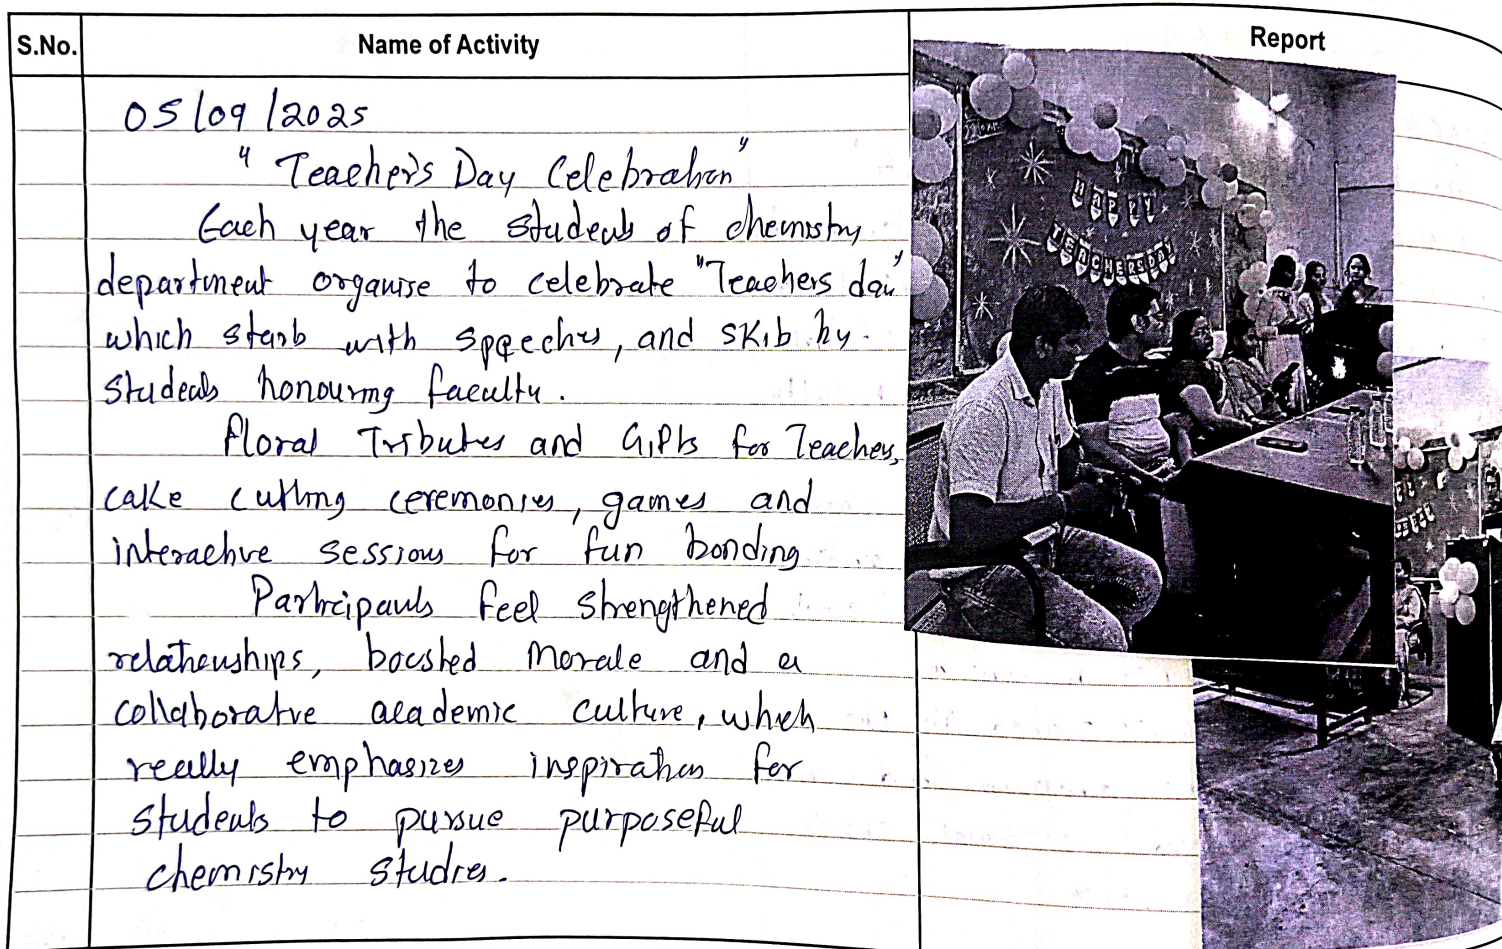 S.No.
Name of Activity
Report
05/09/2025
"Teacher's Day Celebration"
Each year the students of chemistry
department organise to celebrate "Teachers day"
which starts with speeches, and skits by
students honouring faculty.
floral Tributes and Gifts for Teachers,
cake cutting ceremonies, games and
interactive sessions for fun bonding
Participants feel strengthened
relationships, boosted morale and a
collaborative academic culture, which
really emphasizes inspiration for
students to pursue purposeful
chemistry studies.
HAPPY
TEACHERS DAY